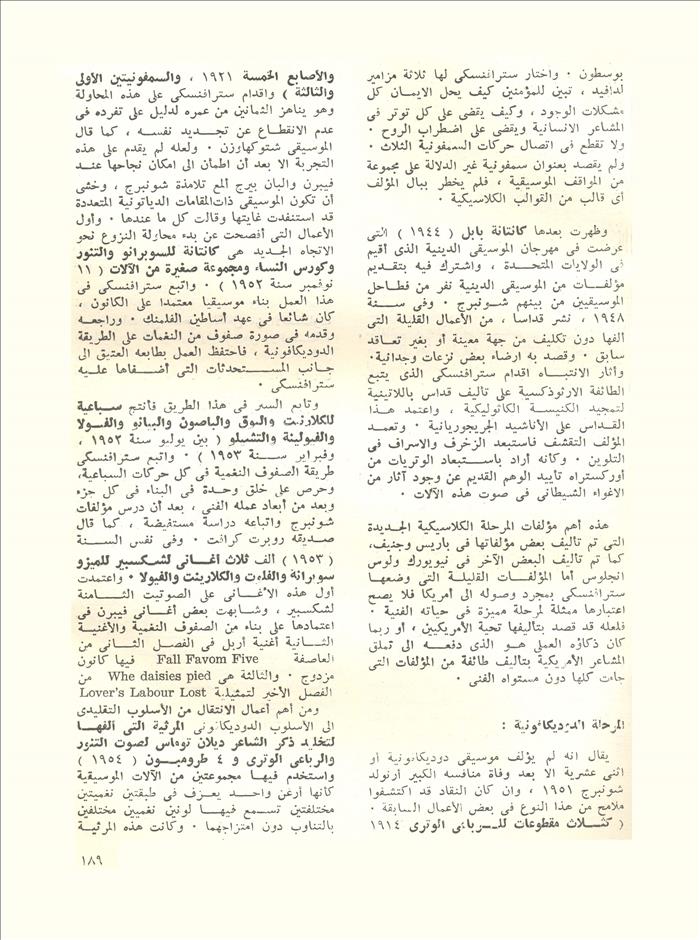 بوسطون ٠ واختار سترافنسكى لها ثلاثة مزامير
لدافيد ، تبين للمؤمنين كيف يحل الايمان كل
مشكلات الوجود ، وكيف يقضى على كل توتر فى
المشاعر الانسانية ويقضى على اضطراب الروح ٠
ولا تقطع فى اتصال حركات السمفونية الثلاث ٠
ولم يقصد بعنوان سمفونية غير الدلالة على مجموعة
من المواقف الموسيقية ، فلم يخطر ببال المؤلف
أى قالب من القوالب الكلاسيكية ٠
وظهرت بعدها كانتاتة بابل ( ١٩٤٤ ) التى
عرضت فى مهرجان الموسيقى الدينية الذى أقيم
فى الولايات المتحدة ، واشترك فيه بتقديم
مؤلفات من الموسيقى الدينية نفر من فطاحل
الموسيقيين من بينهم شونبرج ٠ وفى سنة
١٩٤٨ ، نشر قداسا ، من الأعمال القليلة التى
ألفها دون تكليف من جهة معينة أو بغير تعاقد
سابق ٠ وقصد به ارضاء بعض نزعات وجدانية٠
وأثار الانتباه اقدام سترافنسكى الذى يتبع
الطائفة الارثوذكسية على تأليف قداس باللاتينية
لتمجيد الكنيسة الكاثوليكية ، واعتمد هذا
القداس على الأناشيد الجريجوريانية ٠ وتعمد
المؤلف التقشف فاستبعد الزخرف والاسراف فى
التلوين ٠ وكأنه أراد باستبعاد الوتريات من
أوركستراه تأييد الوهم القديم عن وجود آثار من
الاغواء الشيطانى فى صوت هذه الآلات ٠
هذه أهم مؤلفات المرحلة الكلاسيكية الجديدة
التى تم تأليف بعض مؤلفاتها فى باريس وجنيف،
كما تم تأليف البعض الآخر فى نيويورك ولوس
انجلوس أما المؤلفات القليلة التى وضعها
سترافنسكى بمجرد وصوله الى أمريكا فلا يصح
اعتبارها ممثلة لمرحلة مميزة فى حياته الفنية ٠
فلعله قد قصد بتأليفها تحية الأمريكيين ، أو ربما
كان ذكاؤه العملى هو الذى دفعه الى تملق
المشاعر الأمريكية بتأليف طائفة من المؤلفات التى
جاءت كلها دون مستواه الفنى ٠
المرحلة الدوديكافونية :
يقال انه لم يؤلف موسيقى دوديكافونية أو
اثنى عشرية الا بعد وفاة منافسه الكبير أرنولد
شونبرج ١٩٥١ ، وان كان النقاد قد اكتشفوا
ملامح من هذا النوع فى بعض الأعمال السابقة ٠
( كثلاث مقطوعات للرباعى الوترى ١٩١٤
والأصابع الخمسة ١٩٢١ ، والسمفونيتين الأولى
والثالثة ) واقدام سترافنسكى على هذه المحاولة
وهو يناهز الثمانين من عمره لدليل على تفرده فى
عدم الانقطاع عن تجديد نفسه ، كما قال
الموسيقى شتوكهاوزن ٠ ولعله لم يقدم على هذه
التجربة الا بعد أن اطمأن الى امكان نجاحها عند
فيبرن والبان بيرج ألمع تلامذة شونبرج ، وخشى
أن تكون الموسيقى ذات المقامات الدياتونية المتعددة
قد استنفدت غايتها وقالت كل ما عندها ٠ وأول
الأعمال التى أفصحت عن بدء محاولة النزوع نحو
الاتجاه الجديد هى كانتاتة للسوبرانو والتنور
وكورس النساء ومجموعة صغيرة من الآلات ( ١١
نوفمبر سنة ١٩٥٢ ) ٠ واتبع سترافنسكى فى
هذا العمل بناء موسيقيا معتمدا على الكانون ،
كان شائعا فى عهد أساطين الفلمنك ٠ وراجعه
وقدمه فى صورة صفوف من النغمات على الطريقة
الدوديكافونية ، فاحتفظ العمل بطابعه العتيق الى
جانب المستحدثات التى أضفاها عليه
سترافنسكى ٠
وتابع السير فى هذا الطريق فأنتج سباعية
للكلارنيت والبوق والباصون والبيانو والفيولا
والفيولينة والتشيلو ( بين يوليو سنة ١٩٥٢ ،
وفبراير سنة ١٩٥٣ ) ٠ واتبع سترافنسكى
طريقة الصفوف النغمية فى كل حركات السباعية،
وحرص على خلق وحدة فى البناء فى كل جزء
وبعد من أبعاد عمله الفنى ، بعد أن درس مؤلفات
شونبرج واتباعه دراسة مستفيضة ، كما قال
صديقه روبرت كرافت ٠ وفى نفس السنة
( ١٩٥٣ ) ألف ثلاث أغانى لشكسبير للميزو
سوبرانة والفلوت والكلارينت والفيولا ٠ واعتمدت
أول هذه الأغانى على الصوتيت الثامنة
لشكسبير ، وشابهت بعض أغانى فيبرن فى
اعتمادها على بناء من الصفوف النغمية والأغنية
الثانية أغنية أريل فى الفصل الثانى من
العاصفة Fall Favom Five فيها كانون
مزدوج ٠ والثالثة هى Whe daisies pied من
الفصل الأخير لتمثيلية Lover's Labour Lost
ومن أهم أعمال الانتقال من الأسلوب التقليدى
الى الأسلوب الدوديكافونى المرثية التى ألفها
لتخليد ذكر الشاعر ديلان توماس لصوت التنور
والرباعى الوترى و ٤ طرومبون ( ١٩٥٤ )
واستخدم فيها مجموعتين من الآلات الموسيقية
كأنها أرغن واحد يعزف فى طبقتين نغميتين
مختلفتين تسمع فيها لونين نغميين مختلفين
بالتناوب دون امتزاجهما ٠ وكانت هذه المرثية
١٨٩